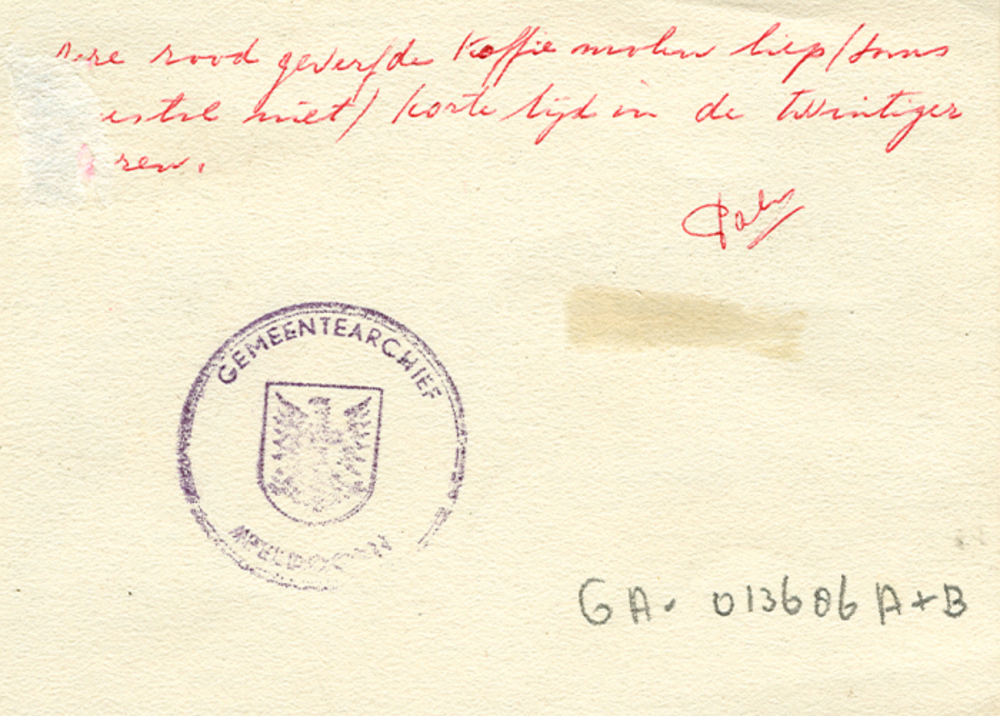 rode geverfde Koffie molen liep (soms
niet) korte tijd in de twintiger
ren.
GEMEENTEARCHIEF
APELDOORN
GA. 013606 A+B